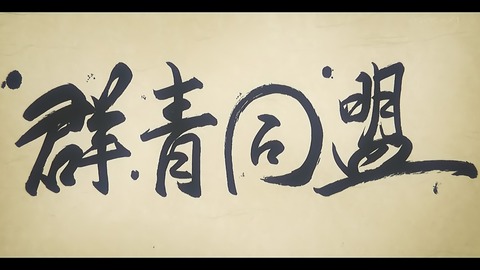 群青同盟